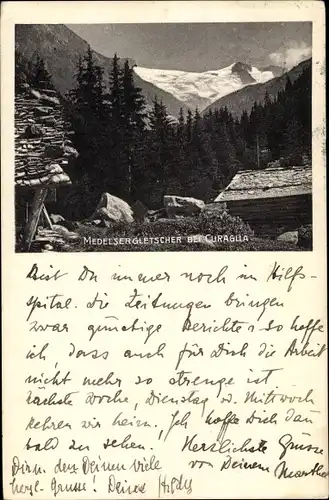 MEDELSERGLETSCHER BEI CURAGLIA
Bist Du immer noch im Hilfs-
spital. die Zeitungen bringen
zwar günstige Berichte & so hoffe
ich, dass auch für Dich die Arbeit
nicht mehr so strenge ist
nächste Woche, Dienstag od. Mittwoch
kehren wir heim. Ich hoffe Dich dann
bald zu sehen. Herzlichste Grüsse
von Deinem
Dir & den Deinen viele
herzl. Grüsse! Deine Hedy